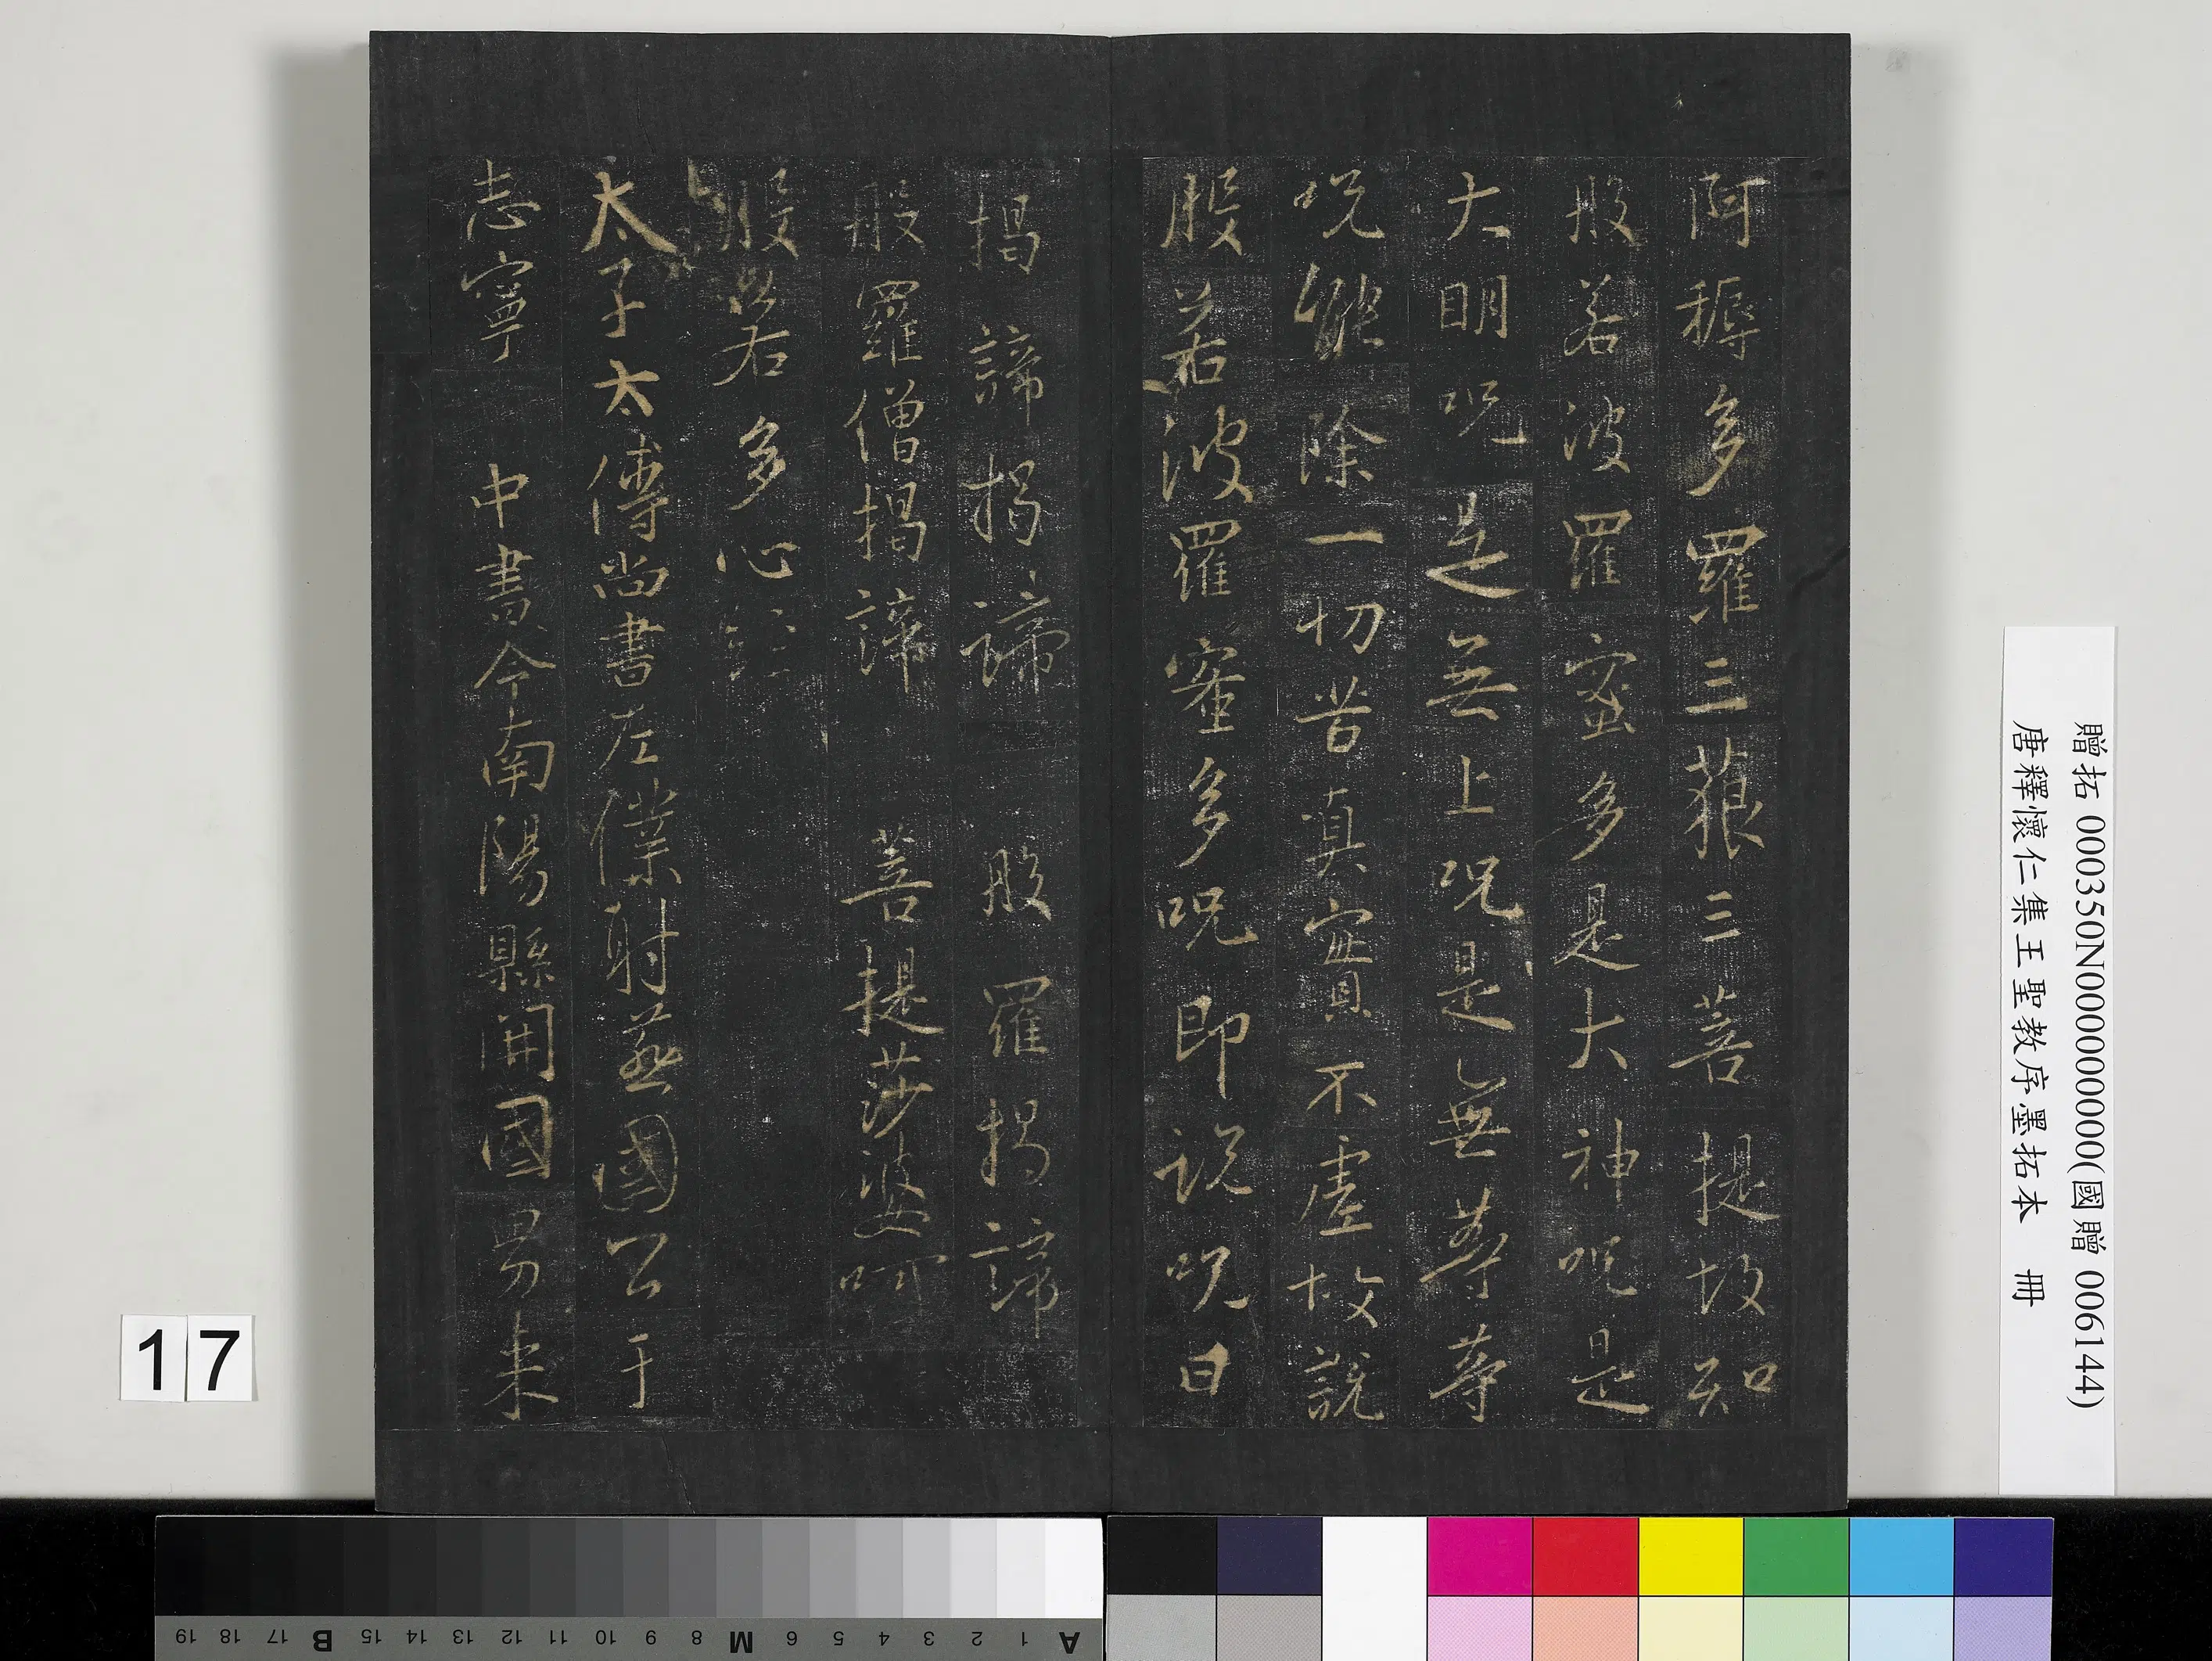 阿耨多羅三藐三菩提故知
般若波羅蜜多是大神呪是
大明呪是無上呪是無等等
呪能除一切苦真實不虛故說
般若波羅蜜多呪即說呪曰
揭諦揭諦 般羅揭諦
般羅僧揭諦 菩提莎婆呵
般若多心經
太子太傅尚書左僕射燕國公于
志寧 中書令南陽縣開國男來
贈拓 000350N000000000(國贈 006144)
唐釋懷仁集王聖教序墨拓本 冊
17
A 1 2 3 4 5 6 M 8 9 10 11 12 13 14 15 B 17 18 19